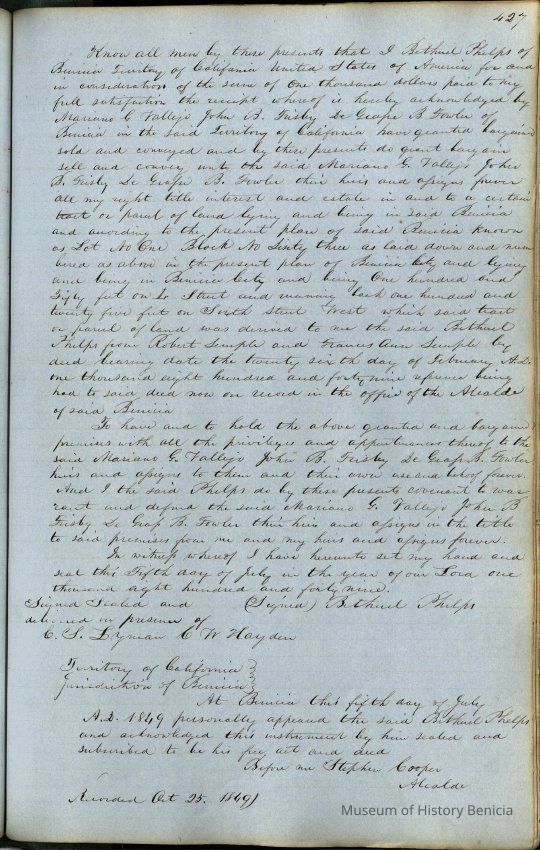 427
Know all men by these presents that I Bethuel Phelps of
Benicia Territory of California United States of America for and
in consideration of the sum of One thousand dollars paid to my
full satisfaction the receipt whereof is hereby acknowledged by
Mariano G Vallejo John B. Frisby De Grasse B Fowler of
Benicia in the said Territory of California have granted bargained
sold and conveyed and by these presents do grant bargain
sell and convey unto the said Mariano G. Vallejo John
B. Frisby De Grasse B. Fowler their heirs and assigns forever
all my right title interest and estate in and to a certain
tract or parcel of land lying and being in said Benicia
and according to the present plan of said Benicia known
as Lot No One Block No Sixty three as laid down and num
bered as above in the present plan of Benicia City and lying
and being in Benicia City and being One hundred and
Fifty feet on Street and running back one hundred and
twenty five feet on Sixth Street West which said tract
or parcel of land was derived to me the said Bethuel
Phelps from Robert Semple and Frances Ann Semple by
deed bearing date the twenty sixth day of February A.D.
one thousand eight hundred and forty nine reference being
had to said deed now on record in the office of the Alcalde
of said Benicia
To have and to hold the above granted and bargained
premises with all the privileges and appurtenances thereof to the
said Mariano G. Vallejo John B. Frisby De Grass B. Fowler
heirs and assigns to them and their own use and behoof forever.
And I the said Phelps do by these presents covenant to war
rant and defend the said Mariano G. Vallejo John B
Frisby De Grass B. Fowler their heirs and assigns in the title
to said premises from me and my heirs and assigns forever.
In witness whereof I have hereunto set my hand and
seal this Fifth day of July in the year of our Lord one
thousand eight hundred and forty nine.
Signed Sealed and (Signed) Bethuel Phelps
delivered in presence of
C. S. Lyman C W Hayden
Territory of California }
Jurisdiction of Benicia }
At Benicia this fifth day of July
A.D. 1849 personally appeared the said Bethuel Phelps
and acknowledged this instrument by him sealed and
subscribed to be his free act and deed
Before me Stephen Cooper
Alcalde
Recorded Oct 25. 1849)
Museum of History Benicia